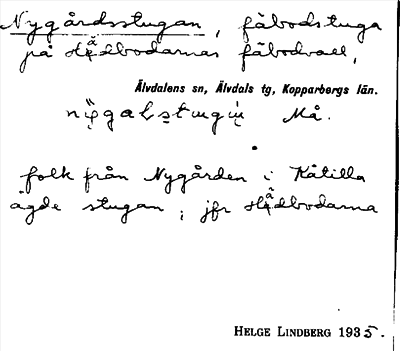 Nygårdsstugan, fäbodstuga
på Hädbodarnas fäbodvall,
Älvdalens sn, Älvdals tg, Kopparbergs län.
Må.
folk från Nygården i Kåtilla
ägde stugan; jfr Hädbodarna
HELGE LINDBERG 1935.